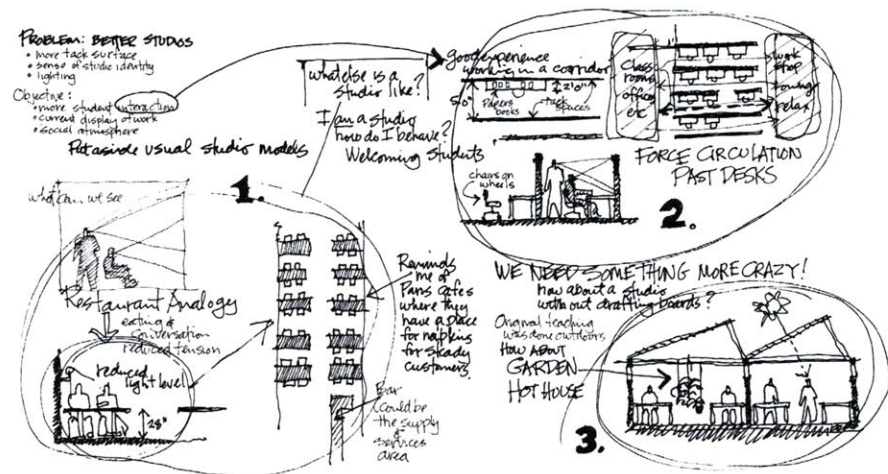 PROBLEM: BETTER STUDIOS
• more tack surface
• sense of studio identity
• lighting
Objective:
• more student interaction
• current display of work
• social atmosphere
Put aside usual studio models
what else is a
studio like?
I am a studio
how do I behave?
Welcoming students
1.
what can we see
Restaurant Analogy
eating &
conversation
reduced tension
reduced
light level
28"
Reminds
me of
Paris Cafes
where they
have a place
for napkins
for steady
customers.
Bar
(could be
the supply
services
area
good experience
working in a corridor
5'0"
2'0"
papers
books
tack
spaces
class
rooms
offices
etc
work
shop
lounge
relax
chairs on
wheels
FORCE CIRCULATION
PAST DESKS
2.
WE NEED SOMETHING MORE CRAZY!
how about a studio
without drafting boards?
Original teaching
was done outdoors
HOW ABOUT
GARDEN
HOT HOUSE
3.